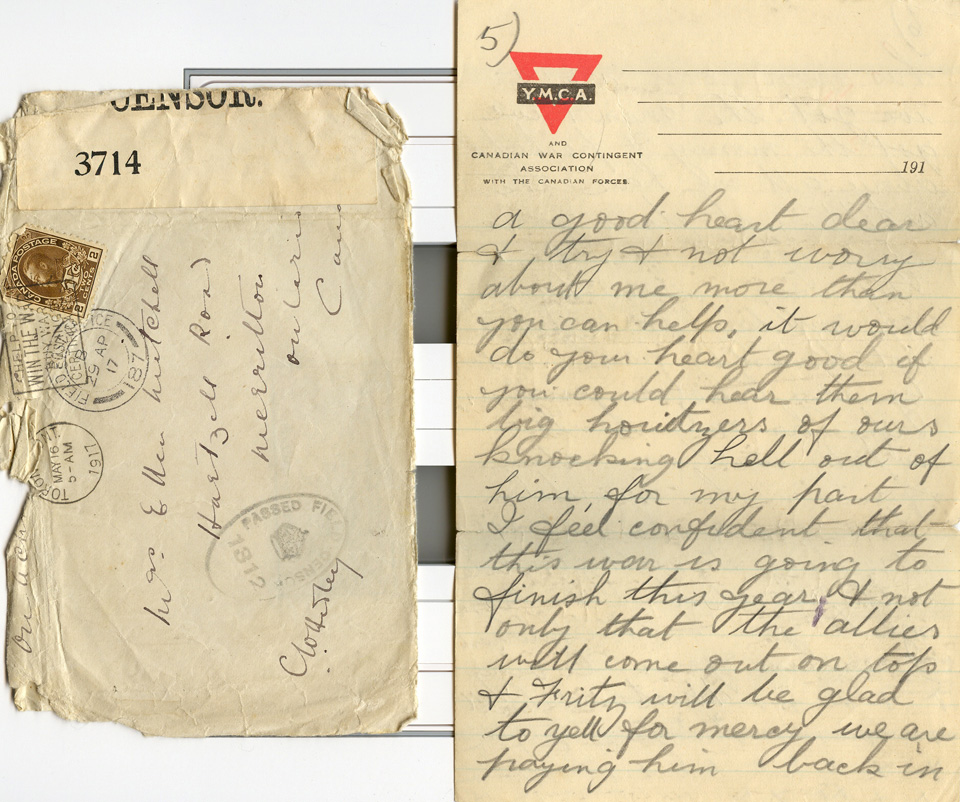 CENSOR.
3714
CANADA POSTAGE
2 TWO CENTS 2
HELP
WIN THE W
FIELD
29 AP
17
187
TORON
MAY 16
5-AM
1917
On Acti
Mrs. E Ellen Mitchell
Hartzell Road
Merritton
Ontario
Can
PASSED FIELD CENSOR
1812
5)
Y.M.C.A.
AND
CANADIAN WAR CONTINGENT
ASSOCIATION
WITH THE CANADIAN FORCES.
191
a good heart dear
& try & not worry
about me more than
you can help, it would
do your heart good if
you could hear them
big houitzers of ours
knocking hell out of
him for my part
I feel confident that
this war is going to
finish this year & not
only that the allies
will come out on top
& Fritz will be glad
to yell for mercy, we are
paying him back in